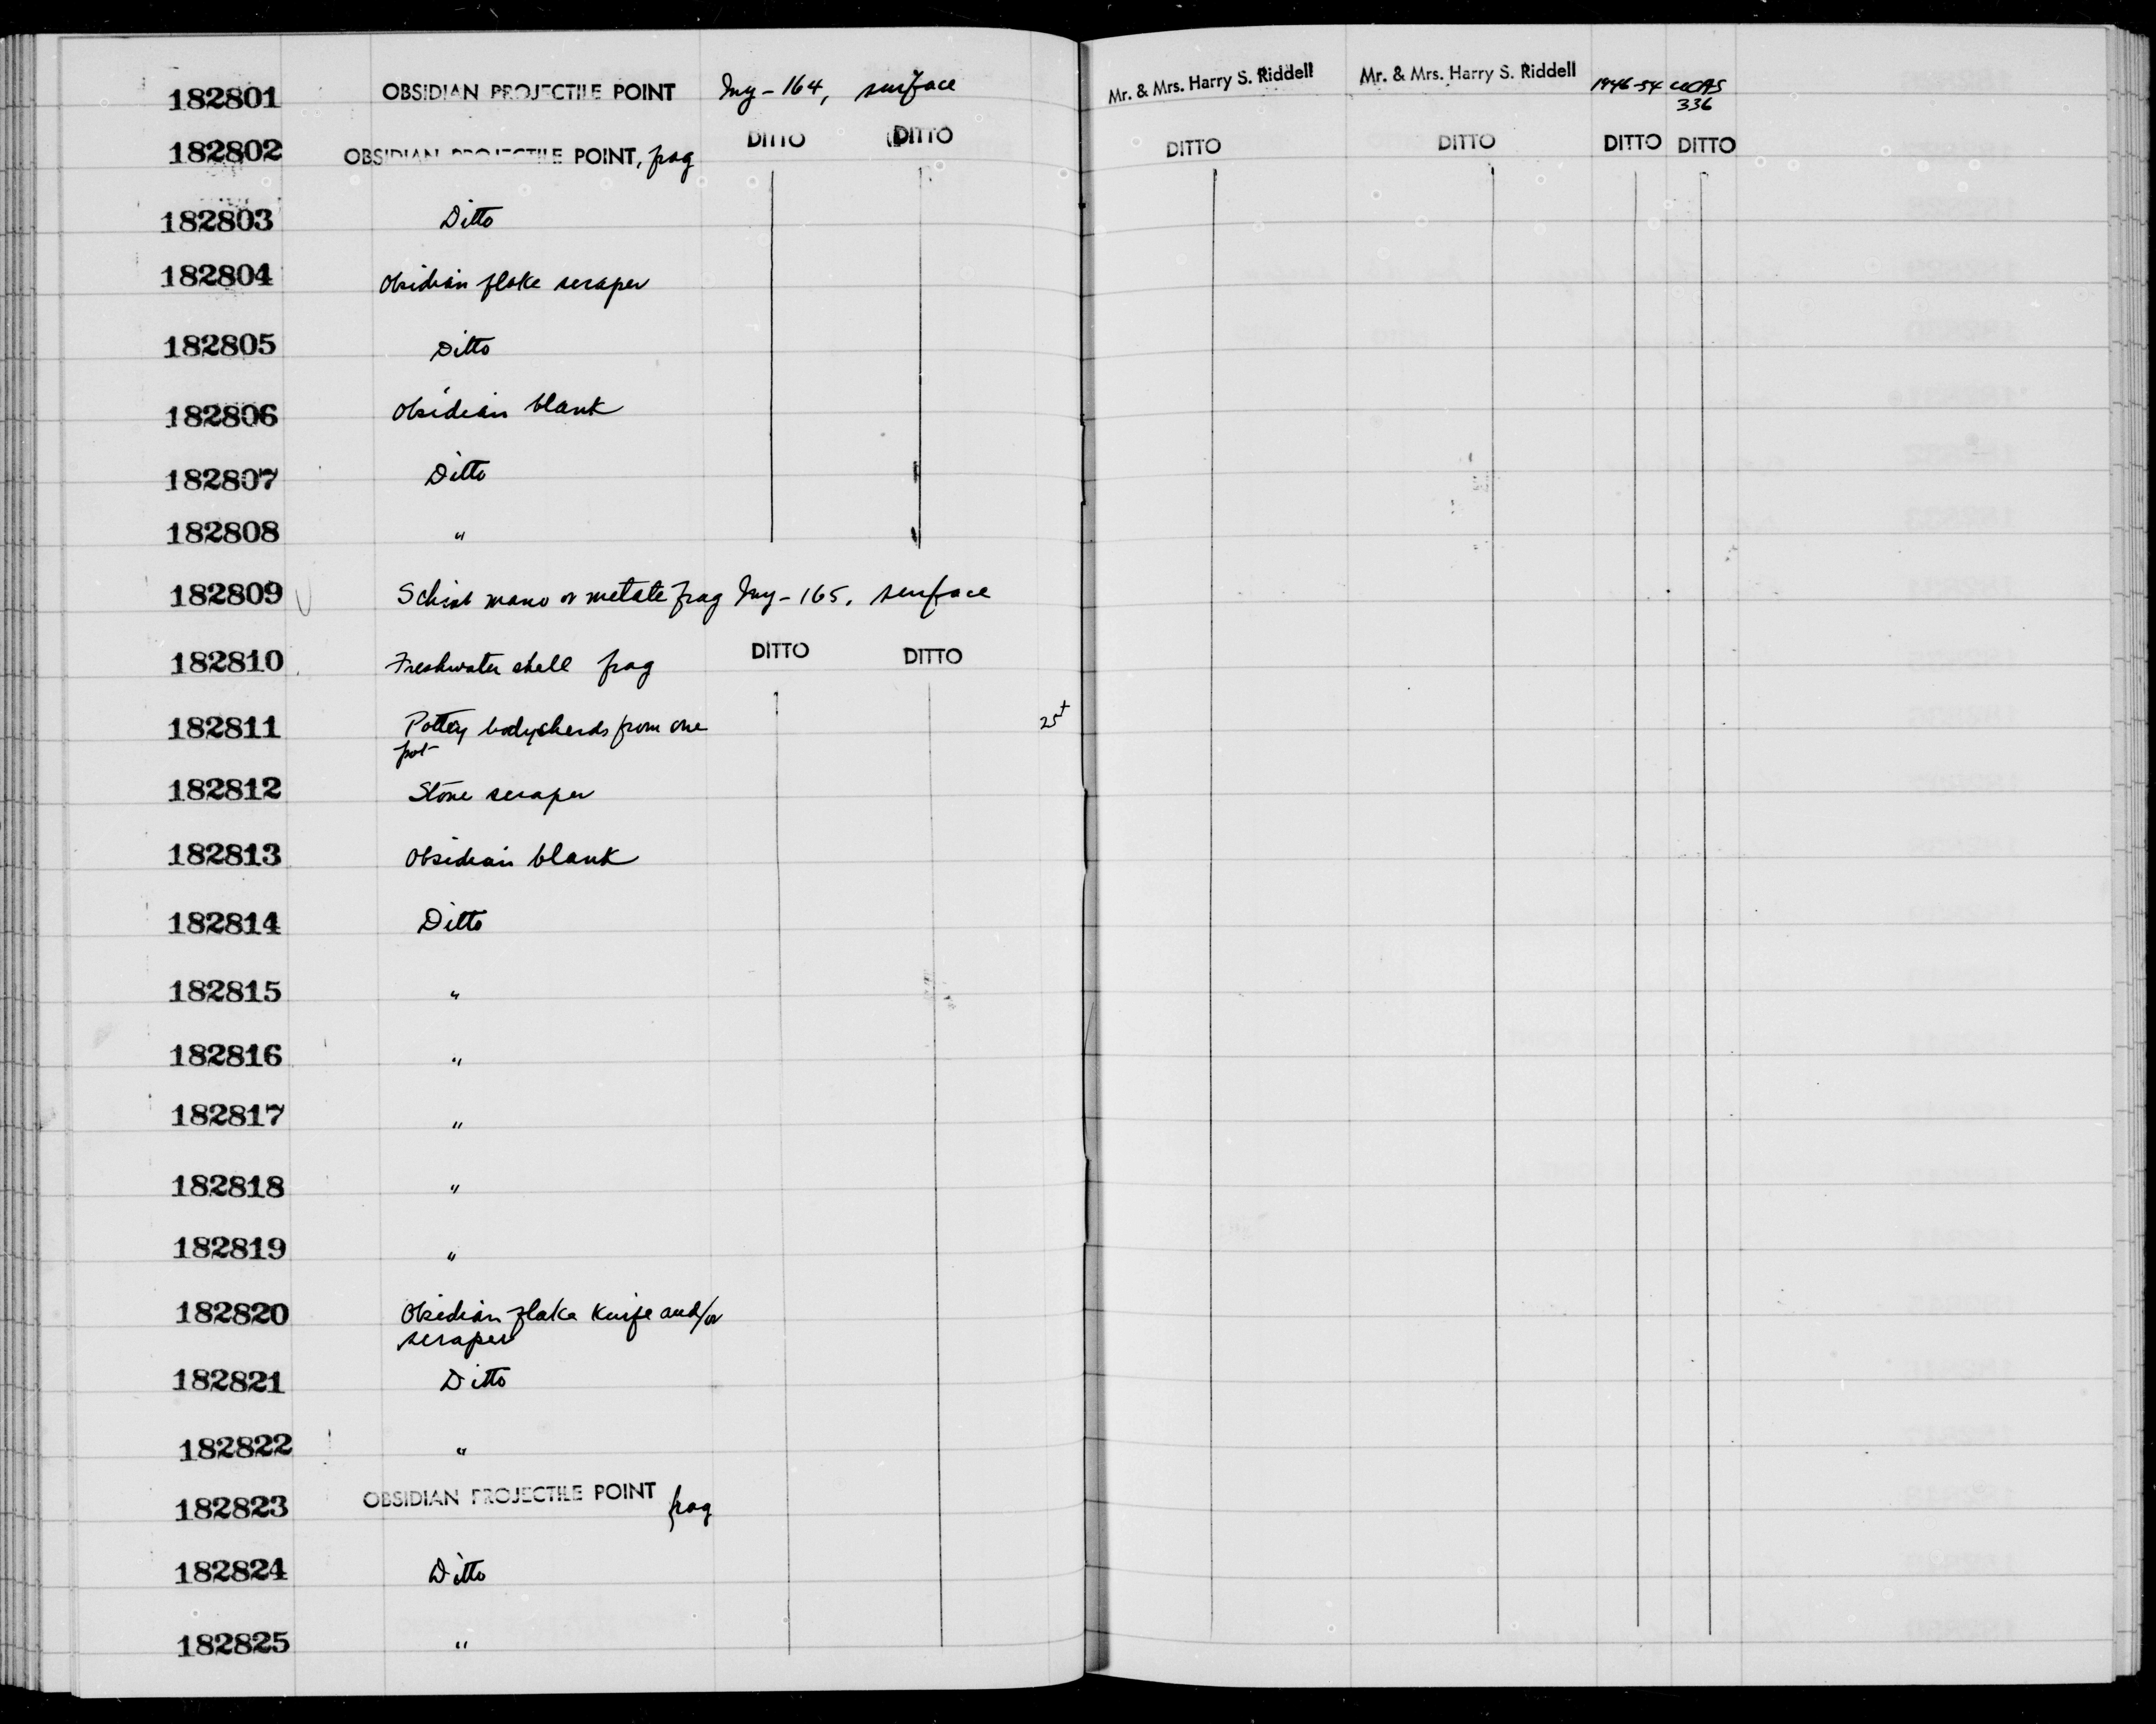 182801 OBSIDIAN PROJECTILE POINT Iny-164, surface Mr. & Mrs. Harry S. Riddell Mr. & Mrs. Harry S. Riddell 1946-54 UCAS
336
182802 OBSIDIAN PROJECTILE POINT, frag DITTO DITTO DITTO DITTO DITTO DITTO
182803 Ditto
182804 Obsidian flake scraper
182805 Ditto
182806 Obsidian blank
182807 Ditto
182808 "
182809 Schist mano or metate frag Iny-165, surface
182810 Freshwater shell frag DITTO DITTO
182811 Pottery bodysherds from one 25+
pot
182812 Stone scraper
182813 Obsidian blank
182814 Ditto
182815 "
182816 "
182817 "
182818 "
182819 "
182820 Obsidian flake knife and/or
scraper
182821 Ditto
182822 "
182823 OBSIDIAN PROJECTILE POINT frag
182824 Ditto
182825 "